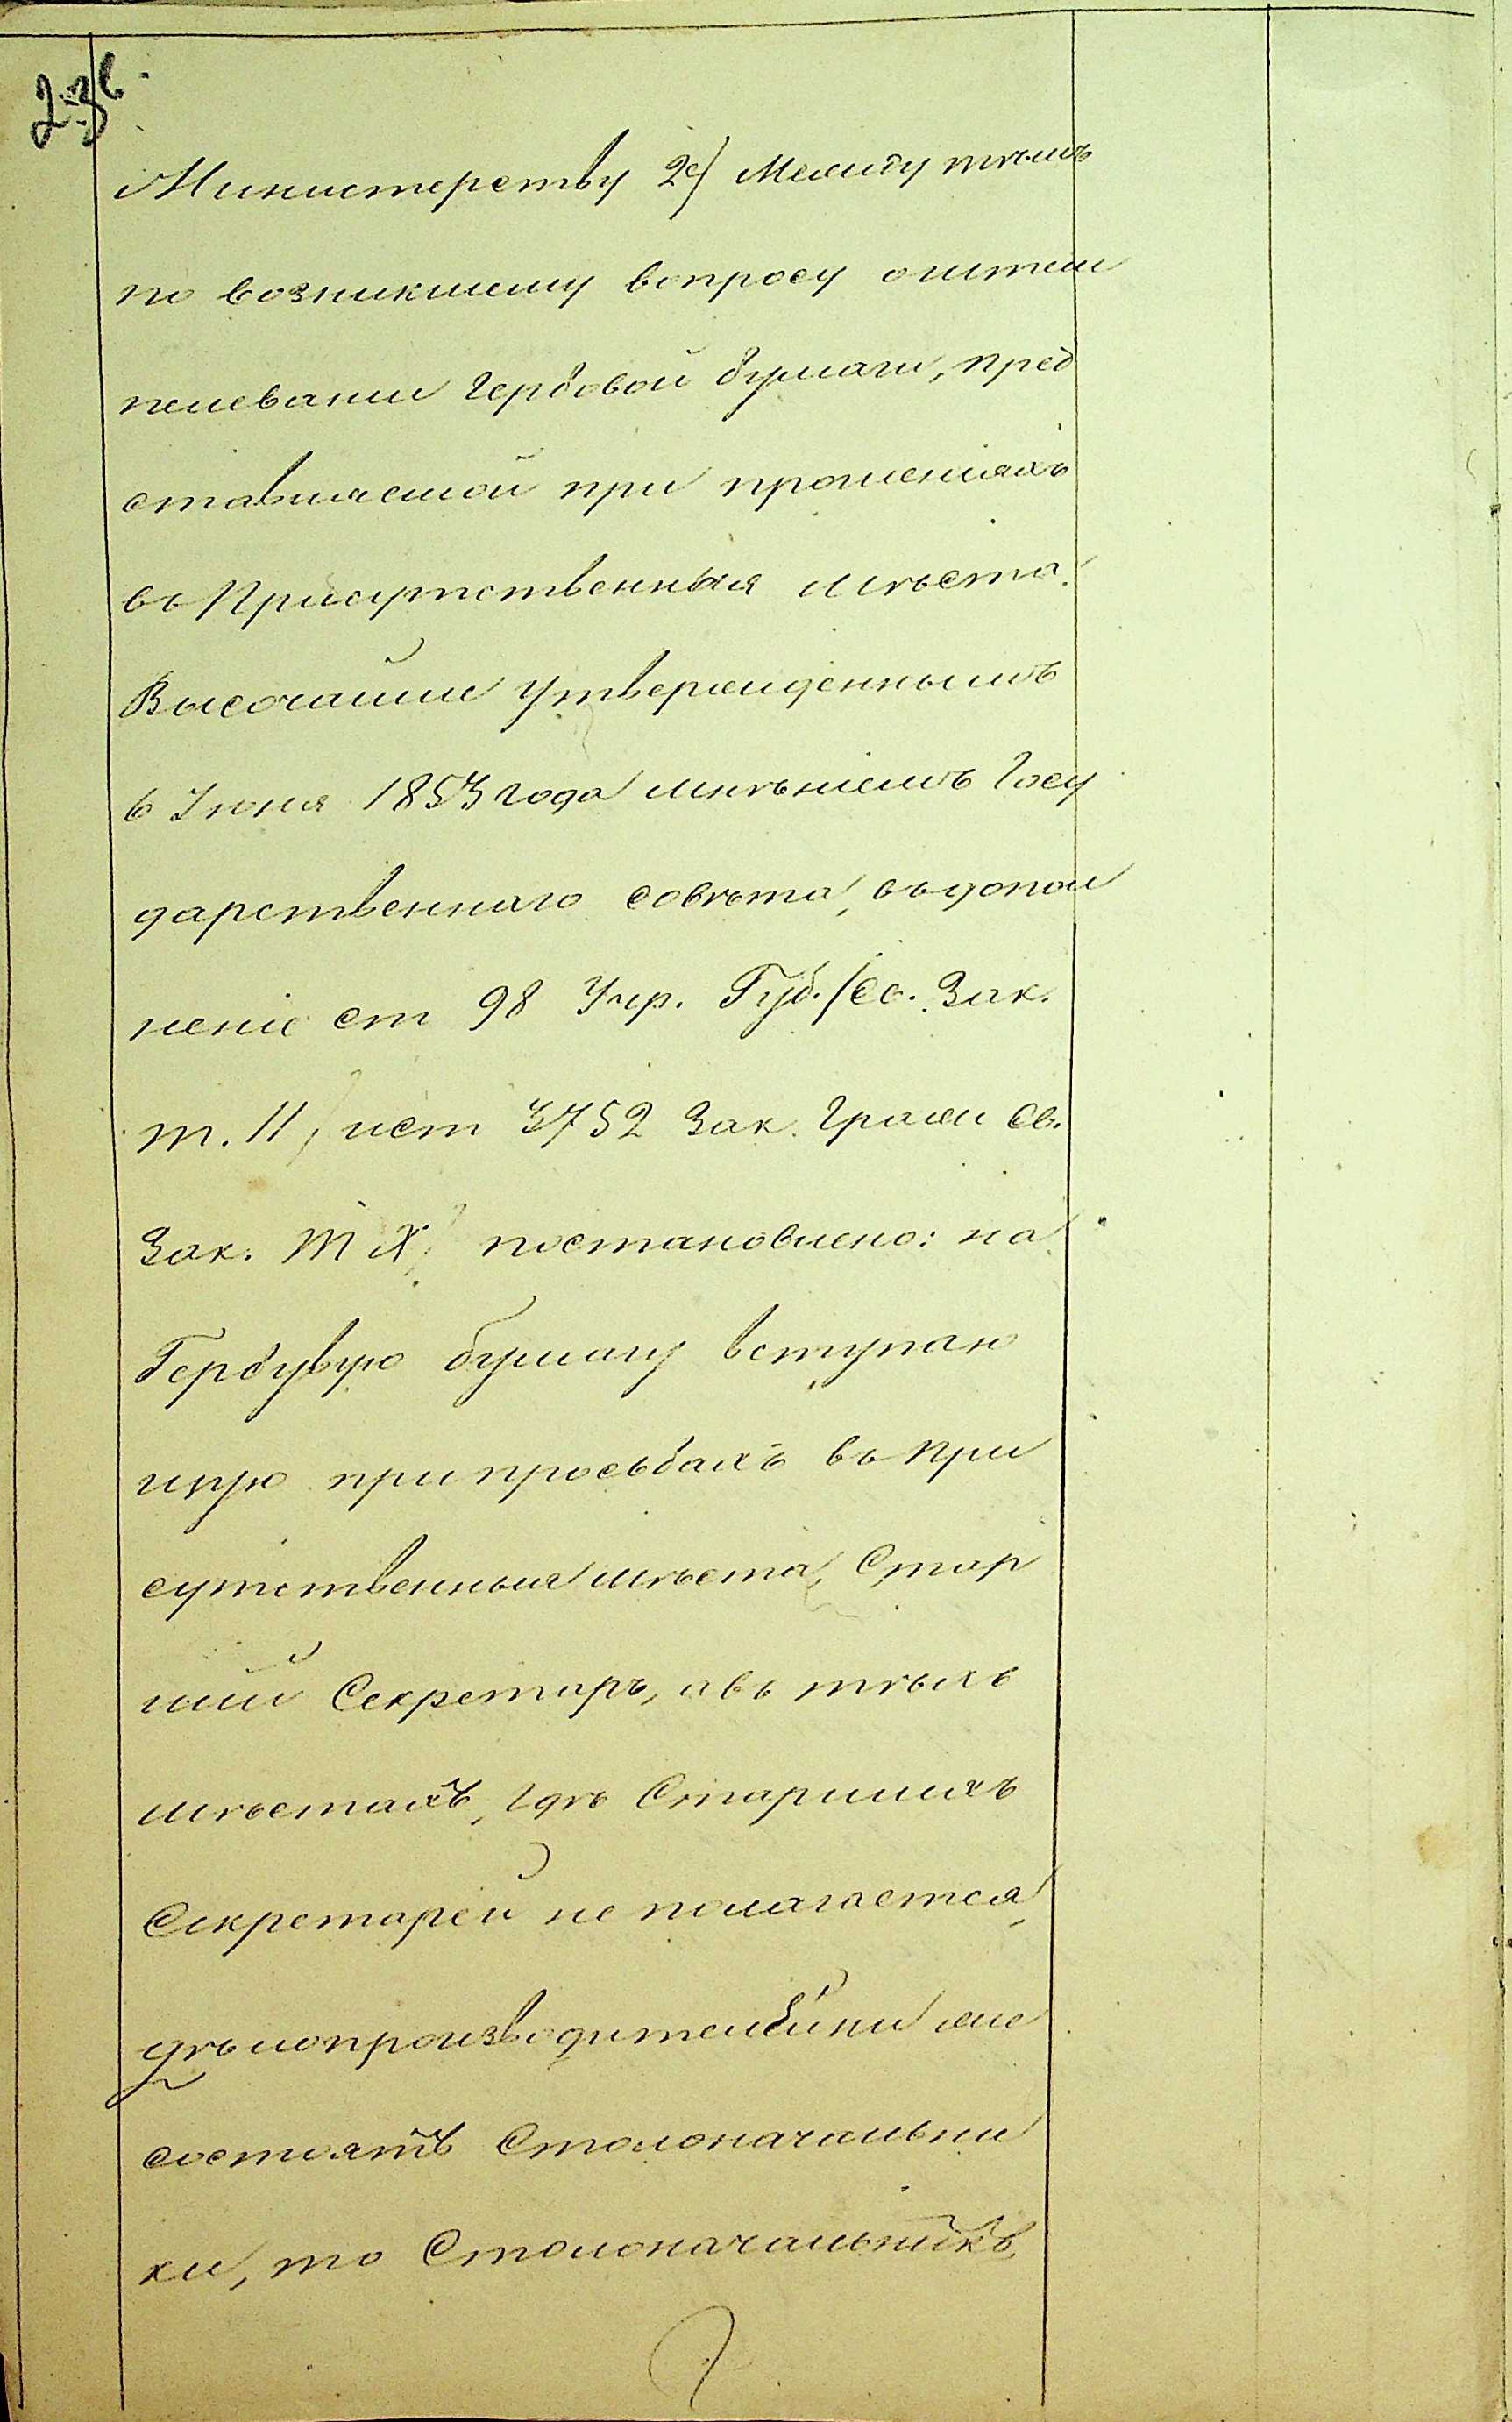 23б.
Министерству 2е) Между тѣмъ
по возникшему вопросу о штем
пелевании Гербовой бумаги, пред
ставляемой при прошенiяхъ
въ Присутственныя мѣста.
Высочайше утвержденнымъ
6 Iюня 1853 года мнѣнiемъ Госу
дарственнаго совѣта, въ допол
ненiе ст 98 Учр. Губ. /Св. Зак.
т. II, и ст 3752 Зак. Граж Св.
Зак. Т X/ постановлено: на
Гербувую бумагу вступаю
щую при просьбахъ въ При
сутственныя мѣста, Стар
шiй Секретарь, а въ тѣхъ
мѣстахъ, гдѣ Старшихъ
Секретарей не полагается,
дѣлопроизводителями же
состоятъ Столоначальни
ки, то Столоначальникъ,